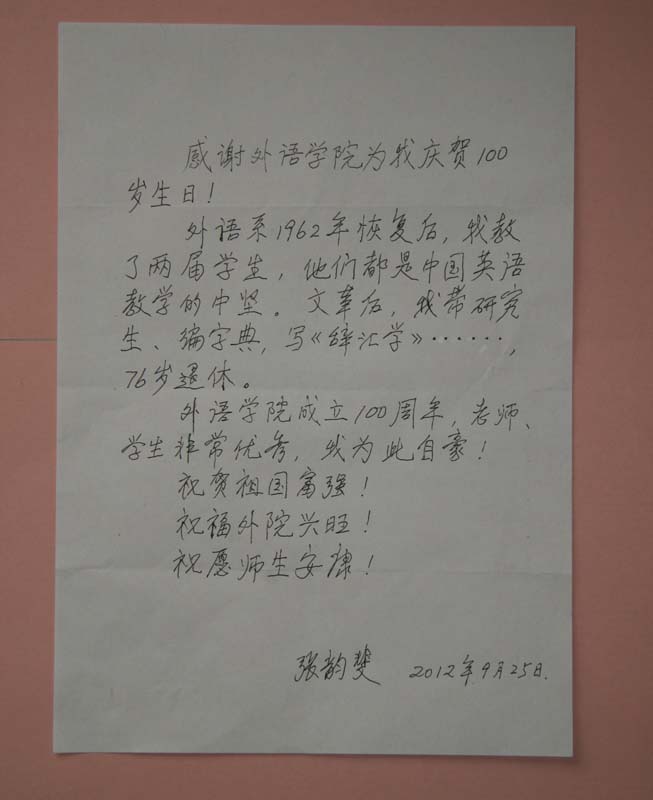 感谢外语学院为我庆贺100
岁生日！
外语系1962年恢复后，我教
了两届学生，他们都是中国英语
教学的中坚。文革后，我带研究
生、编字典，写《辞汇学》……，
76岁退休。
外语学院成立100周年，老师、
学生非常优秀，我为此自豪！
祝贺祖国富强！
祝福外院兴旺！
祝愿师生安康！
张韵斐 2012年9月25日.